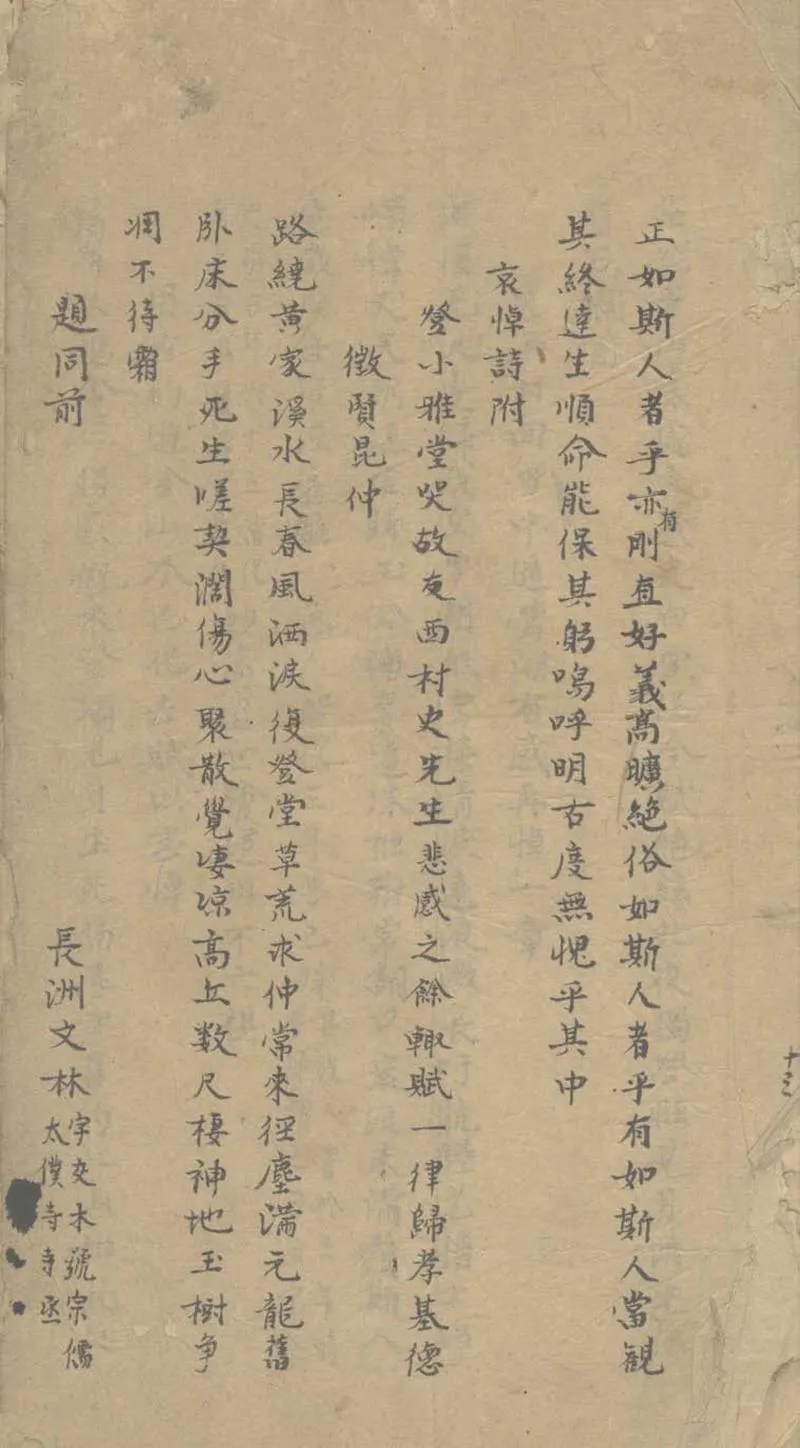 正如斯人者乎亦有剛直好義高曠絕俗如斯人者乎有如斯人當観
其終達生順命能保其躬嗚呼明古度無愧乎其中
哀悼詩附
登小雅堂哭故友西村史先生悲感之餘輙賦一律歸孝基德
徵賢昆仲
路繞黄家溪水長春風洒淚復登堂草荒求仲常來徑塵满元龍舊
卧床分手死生嗟契濶傷心聚散覺凄凉髙丘数尺棲神地玉樹争
凋不待霜
題同前
長洲文林
字交木號宗儒
太僕寺寺丞
十三